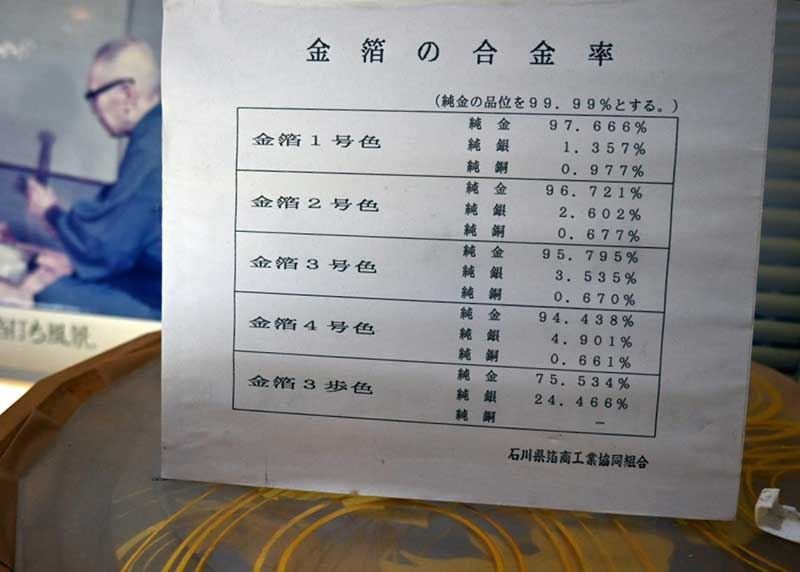 金箔の合金率
（純金の品位を９９．９９％とする。）
金箔１号色 純金 ９７．６６６％
純銀 １．３５７％
純銅 ０．９７７％
金箔２号色 純金 ９６．７２１％
純銀 ２．６０２％
純銅 ０．６７７％
金箔３号色 純金 ９５．７９５％
純銀 ３．５３５％
純銅 ０．６７０％
金箔４号色 純金 ９４．４３８％
純銀 ４．９０１％
純銅 ０．６６１％
金箔３歩色 純金 ７５．５３４％
純銀 ２４．４６６％
純銅 －
石川県箔商工業協同組合
打ち風景